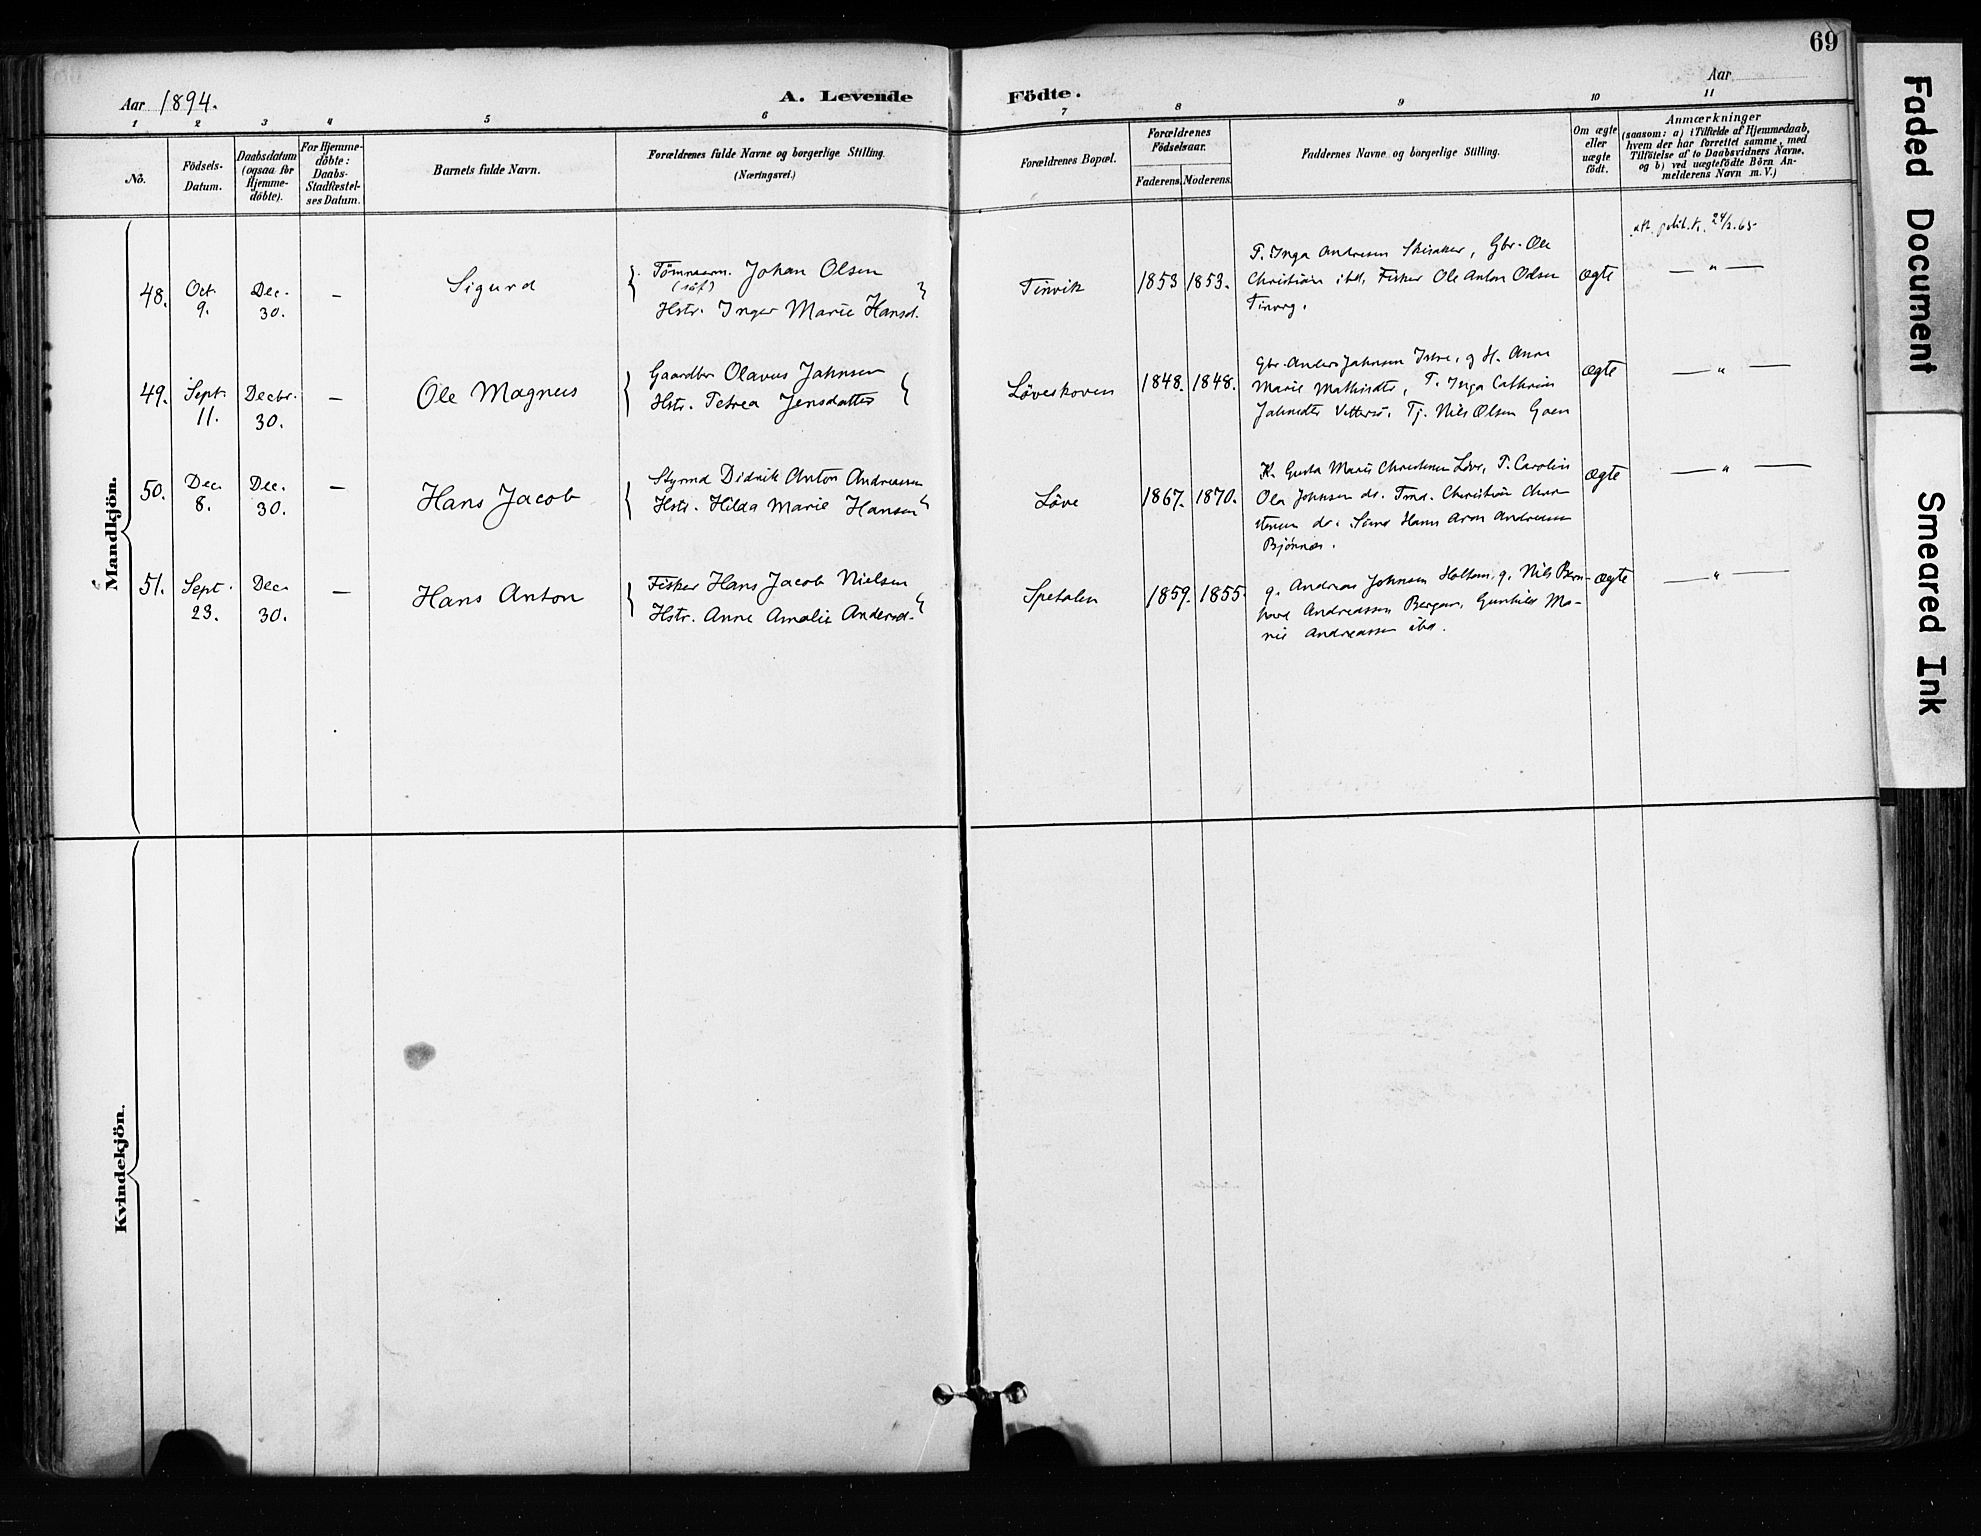 69
Aar 1894.
A. Levende
Födte.
Aar
1 2 3 4 5 6 7 8 9 10 11
No.
Födsels-
Datum.
Daabsdatum
(ogsaa for
Hjemme-
döbte).
For Hjemme-
döbte:
Daabs-
Stadfæstel-
ses Datum.
Barnets fulde Navn.
Forældrenes fulde Navne og borgerlige Stilling.
(Næringsvei.)
Forældrenes Bopæl.
Forældrenes
Födselsaar.
Faderens. Moderens.
Faddernes Navne og borgerlige Stilling.
Om ægte
eller
uægte
födt.
Anmærkninger
(saasom: a) i Tilfælde af Hjemmedaab,
hvem der har forrettet samme, med
Tilföielse af to Daabsvidners Navne.
og b) ved uægtefödte Börn An-
melderens Navn m. V.)
Mandkjön.
48.
Oct
9.
Dec.
30.
—
Sigurd
Tömmerm. Johan Olsen
Hstr. Inger Marie Hansd.
Tinvik
1853 1853.
F. Inga Andresen Skisaker, Gbr. Ole
Christian ibd, Fisker Ole Anton Odsen
ægte
24/2.65
— " —
49.
Sept
11.
Decbr.
30.
—
Ole Magnus
Gaardbr Olavus Jahnsen
Hstr. Petrea Jensdatter
Löveskoven
1848. 1848.
Gbr. Anders Jahnsen Istre, g H. Anne
Marie Mathisdtr, F. Inga Cathrine
Jahnsdtr Vettersö, Tj. Nils Olsen Goen
ægte
— " —
50.
Dec
8.
Dec.
30.
—
Hans Jacob
Styrmd Didrik Anton Andreassen
Hstr. Hilda Marie Hansen
Löve
1867. 1870.
K. Gusta Marie Christensen Löve, F. Caroline
Ole Johnsen ds. Tmd. Christian Chri-
stensen ds. Hans Aron Andreassen
Bjönnes.
ægte
— " —
51.
Sept.
23.
Dec
30.
—
Hans Anton
Fisker Hans Jacob Nielsen
Hstr. Anne Amalie Andersd.
Spetalen
1859. 1855
g. Andreas Johnsen Holtom, g. Nils Bern-
hard Andreassen Bergan, Gunhild Ma-
rie Andreassen ibd.
ægte
— " —
Kvindekjön.
Faded Document
Smeared Ink